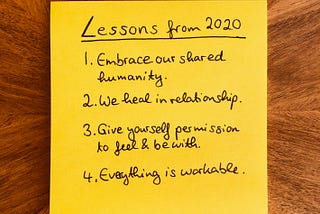 Lessons from 2020
1. Embrace our shared
humanity.
2. We heal in relationship.
3. Give yourself permission
to feel & be with.
4. Everything is workable.